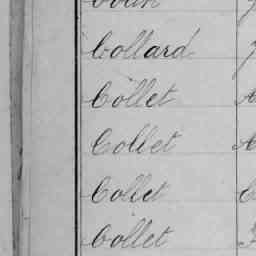 Collard
Collet A
Collet A
Collet C
Collet